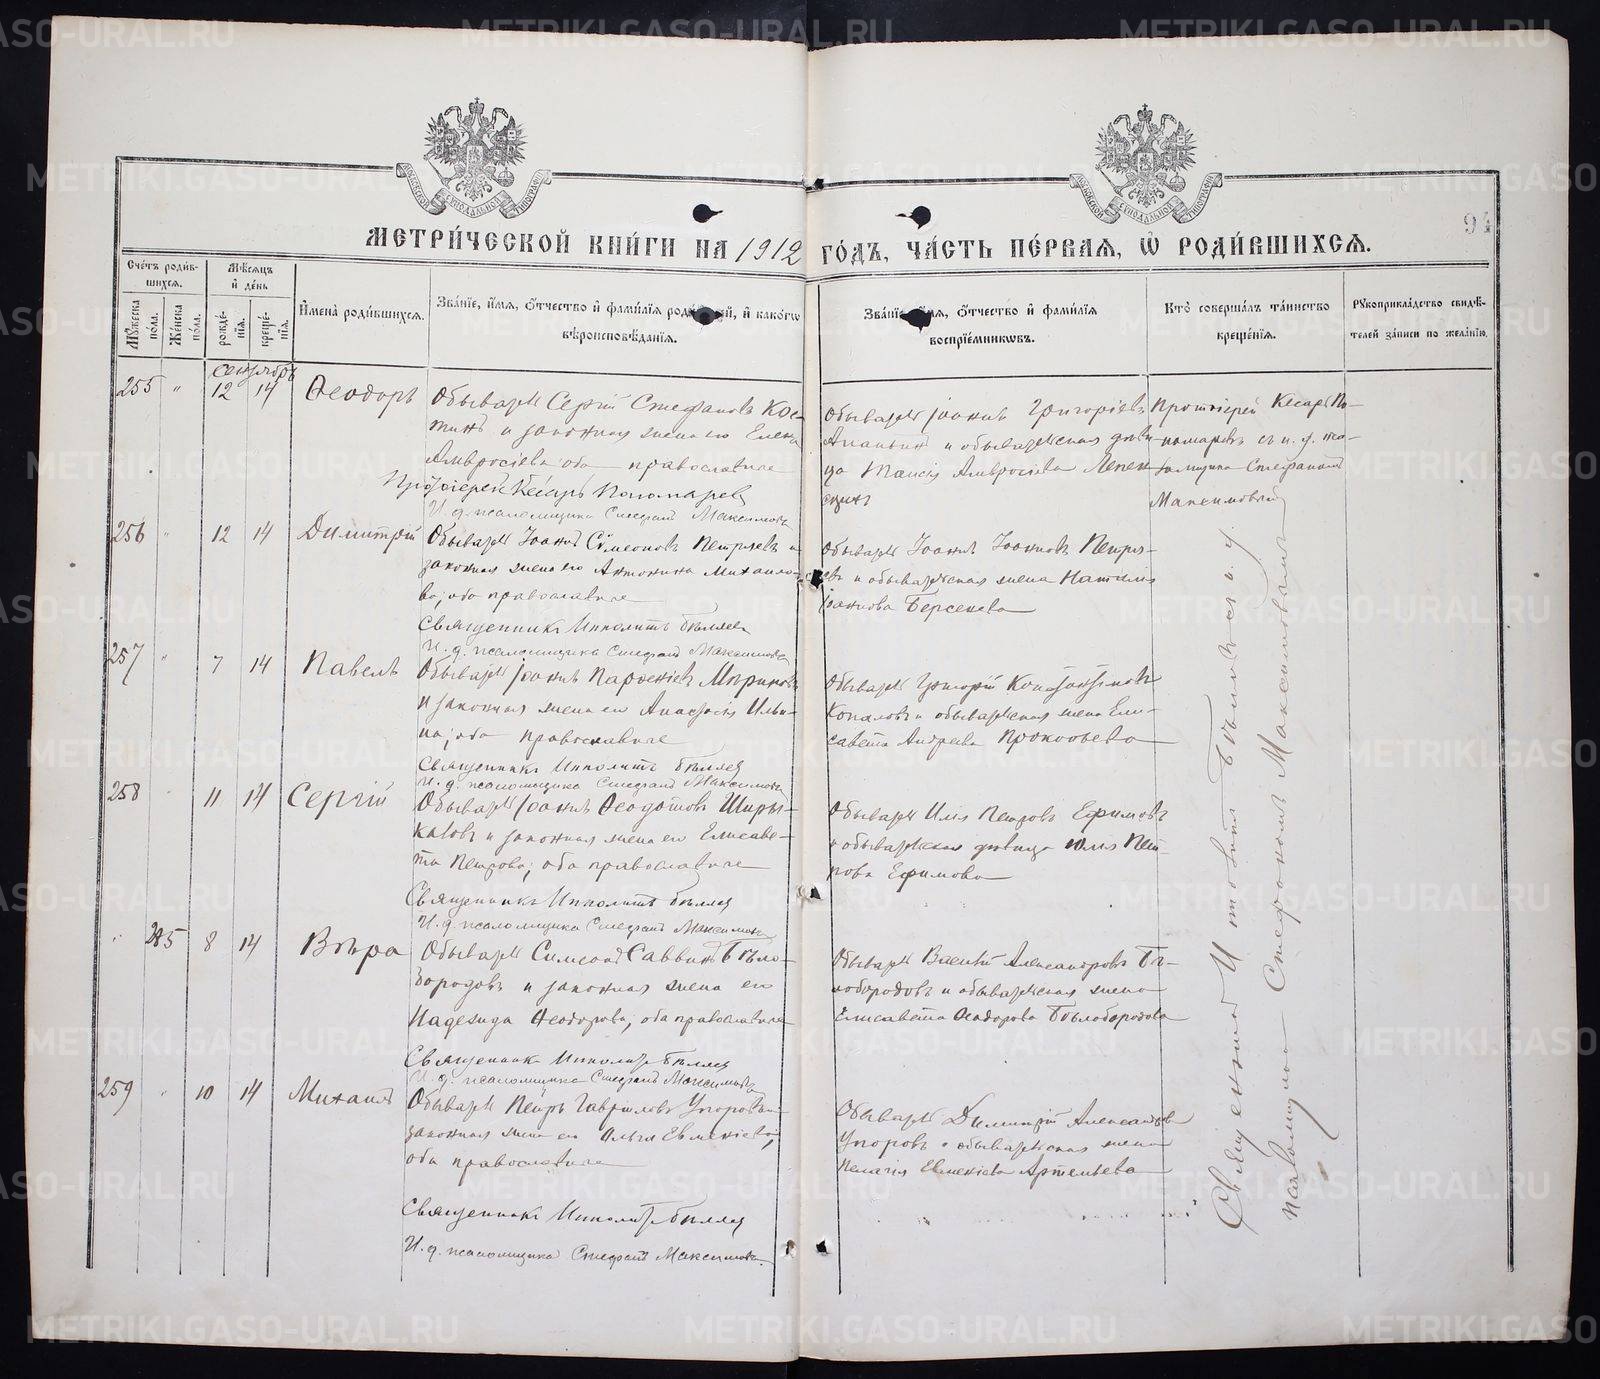 94
МОСКОВСКОЙ СУНОДАЛЬНОЙ ТИПОГРАФІИ
МОСКОВСКОЙ СУНОДАЛЬНОЙ ТИПОГРАФІИ
МЕТРИ́ЧЕСКОЙ КНИ́ГИ НА 1912 ГО́ДЪ, ЧА́СТЬ ПЕ́РВАЯ, Ѡ РОДИ́ВШИХСЯ.
Сче́тъ роди́в-
шихся.
Му́жеска по́ла.
Же́нска по́ла.
Мѣ́сяцъ и де́нь
рожде́-нїя.
креще́-нїя.
И́мена̀ роди́вшихся.
Зва́нїе, и́мя, о́тчество и фами́лїя роди́телей, и како́гѡ
вѣроисповѣ́данїя.
Зва́нїе, и́мя, о́тчество и фами́лїя
воспрїе́мникѡвъ.
Кто̀ соверша́лъ та́инство
креще́нїя.
Рꙋкоприкла́дство свидѣ́-
телей за́писи по жела́нїю.
Сентябрь
255 " 12 14 Ѳеодоръ
Обыватель Сергій Стефановъ Кос-
тинъ и законная жена его Елена
Амвросіева оба православные
Протоіерей Кесарь Пономаревъ
И. д. псаломщика Стефанъ Максимовъ
Обыватель Іоаннъ Григоріевъ
Ананьинъ и обывательская дѣви-
ца Таисія Амвросіева
Протоіерей Кесарь По-
номаревъ съ и. д. пса-
ломщика Стефаномъ
Максимовымъ
256 " 12 14 Димитрій
Обыватель Іоаннъ Сѵмеоновъ Петряевъ и
законная жена его Антонина Михайло-
ва, оба православные
Священникъ Ипполитъ Бѣляевъ
И. д. псаломщика Стефанъ Максимовъ
Обыватель Іоаннъ Іоанновъ Петря-
евъ и обывательская жена Наталія
Іоаннова Берсенева
257 " 7 14 Павелъ
Обыватель Іоаннъ Парѳеніевъ Мѣриновъ
и законная жена его Анастасія Ильи-
на, оба православные
Священникъ Ипполитъ Бѣляевъ
И. д. псаломщика Стефанъ Максимовъ
Обыватель Григорій Константиновъ
Копаловъ и обывательская жена Ели-
савета Андреева Прокопьева
258 " 11 14 Сергій
Обыватель Іоаннъ Ѳеодотовъ Шары-
каловъ и законная жена его Елисаве-
та Петрова, оба православные
Священникъ Ипполитъ Бѣляевъ
И. д. псаломщика Стефанъ Максимовъ
Обыватель Илія Петровъ Ефимовъ
и обывательская дѣвица Юлія Пет-
рова Ефимова
" 285 8 14 Вѣра
Обыватель Симеонъ Саввинъ Бѣло-
бородовъ и законная жена его
Надежда Ѳеодорова, оба православные
Священникъ Ипполитъ Бѣляевъ
И. д. псаломщика Стефанъ Максимовъ
Обыватель Василій Александровъ Бѣ-
лобородовъ и обывательская жена
Елисавета Ѳеодорова Бѣлобородова
259 " 10 14 Михаилъ
Обыватель Петръ Гавриловъ Упоровъ и
законная жена его Ольга Евменіева,
оба православные
Священникъ Ипполитъ Бѣляевъ
И. д. псаломщика Стефанъ Максимовъ.
Обыватель Димитрій Александровъ
Упоровъ и обывательская жена
Пелагія Евменіева Артемьева
Священникъ Ипполитъ Бѣляевъ съ и. д.
псаломщика Стефаномъ Максимовымъ
METRIKI.GASO-URAL.RU